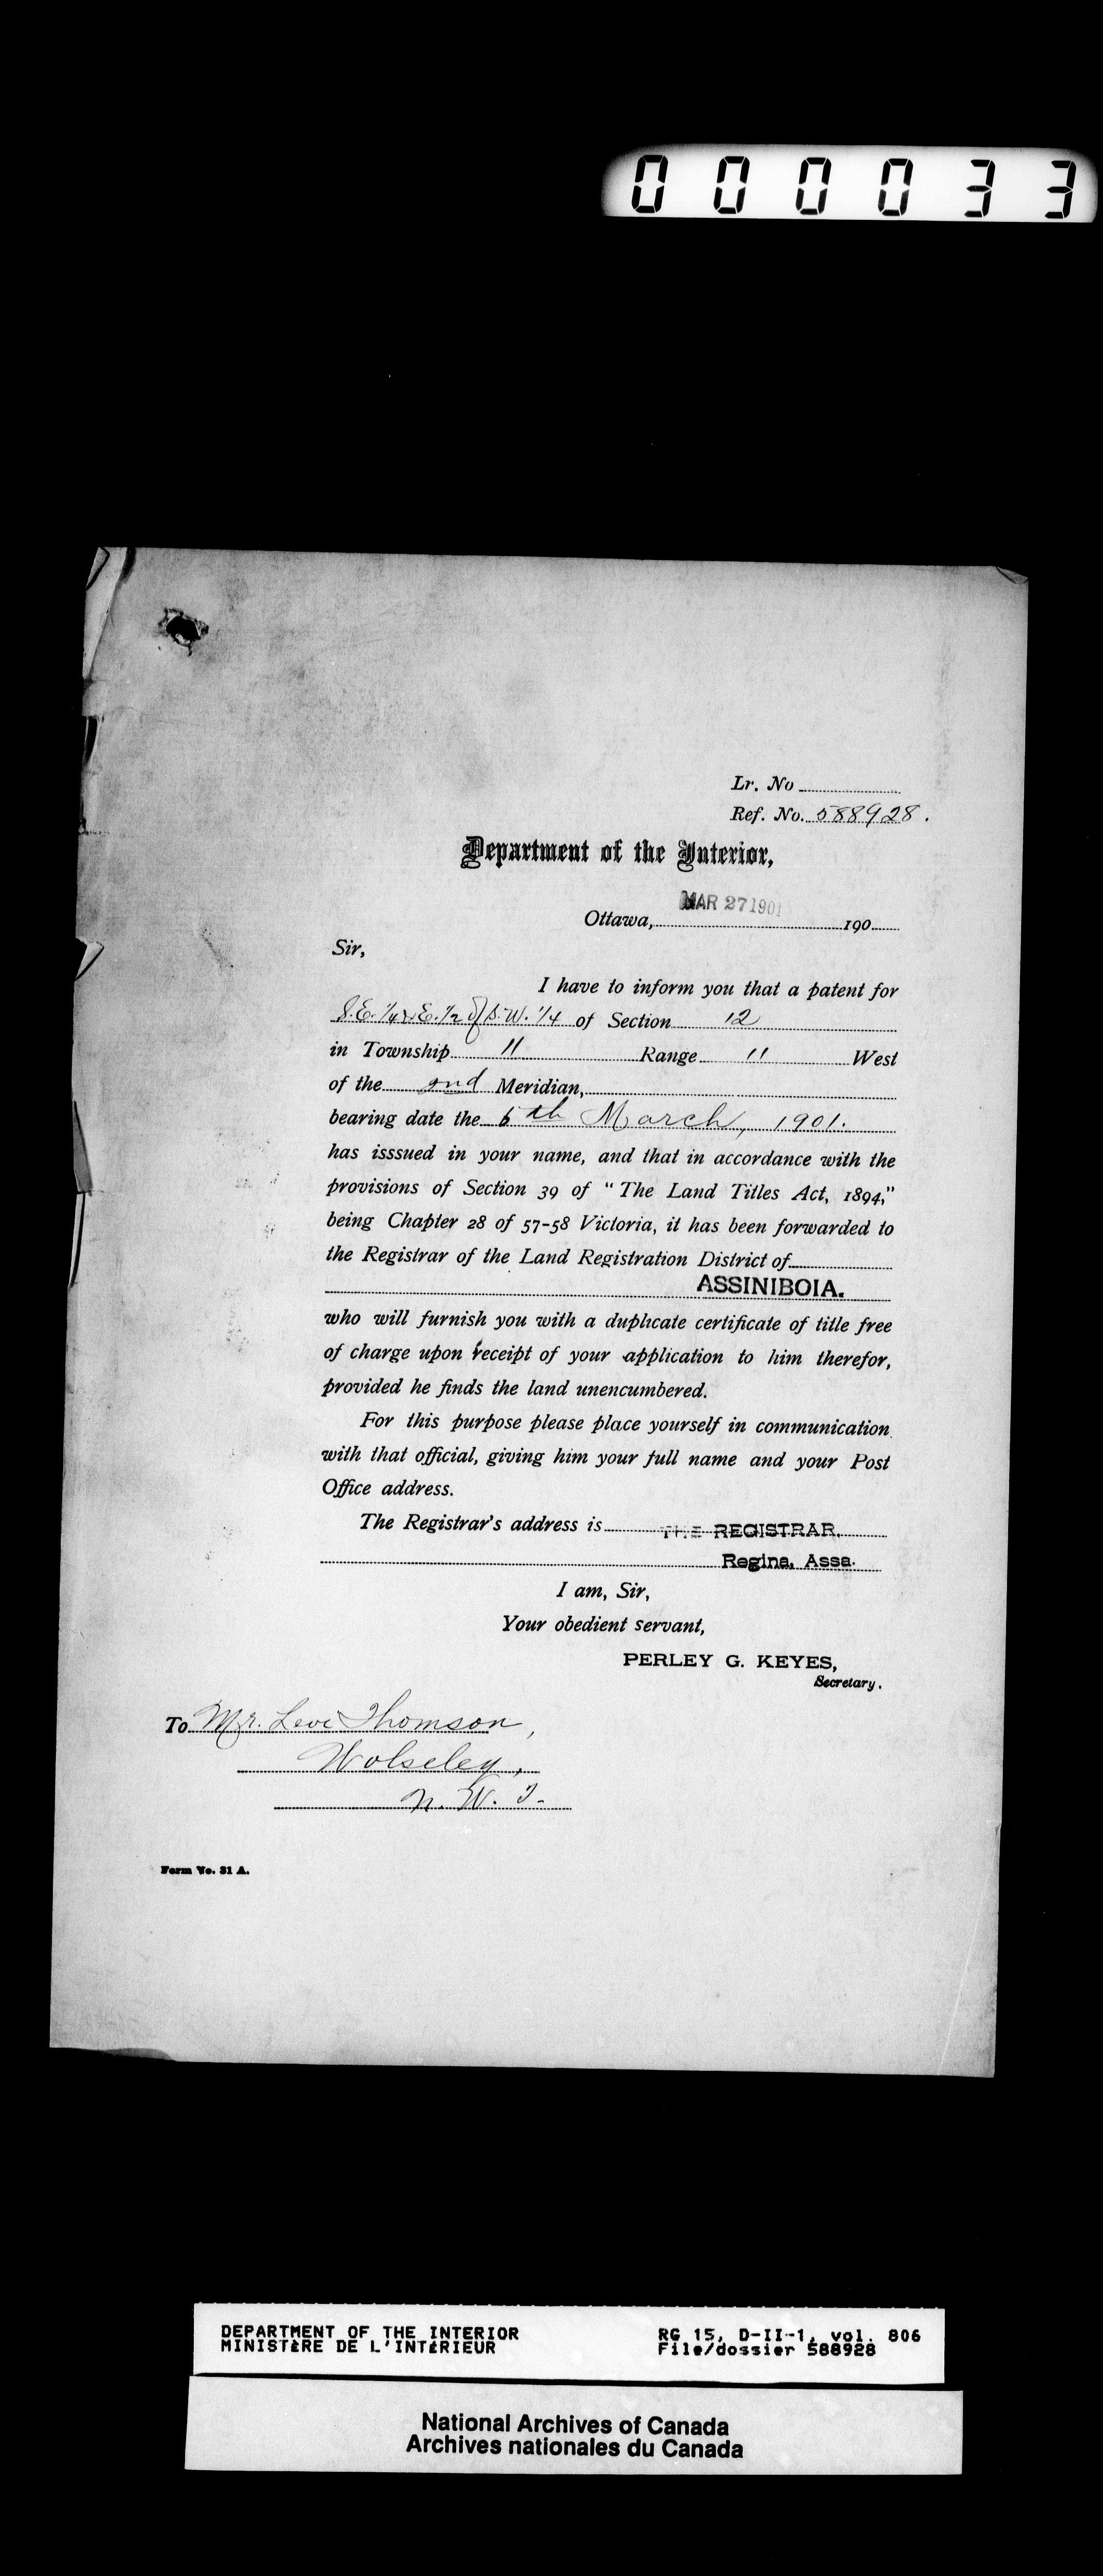 000033
Lr. No
Ref. No. 588928.
Department of the Interior,
MAR 27 1901
Ottawa, 190
Sir,
I have to inform you that a patent for
S.E. 1/4 & E. 1/2 of S.W. 1/4 of Section 12
in Township 11 Range 11 West
of the 2nd Meridian,
bearing date the 6th March, 1901.
has isssued in your name, and that in accordance with the
provisions of Section 39 of "The Land Titles Act, 1894,"
being Chapter 28 of 57-58 Victoria, it has been forwarded to
the Registrar of the Land Registration District of
ASSINIBOIA.
who will furnish you with a duplicate certificate of title free
of charge upon receipt of your application to him therefor,
provided he finds the land unencumbered.
For this purpose please place yourself in communication
with that official, giving him your full name and your Post
Office address.
The Registrar's address is THE REGISTRAR,
Regina, Assa.
I am, Sir,
Your obedient servant,
PERLEY G. KEYES,
Secretary.
To Mr. Levi Thomson,
Wolseley,
N. W. T.
Form No. 31 A.
DEPARTMENT OF THE INTERIOR RG 15, D-II-1, vol. 806
MINISTÈRE DE L'INTÉRIEUR File/dossier 588928
National Archives of Canada
Archives nationales du Canada